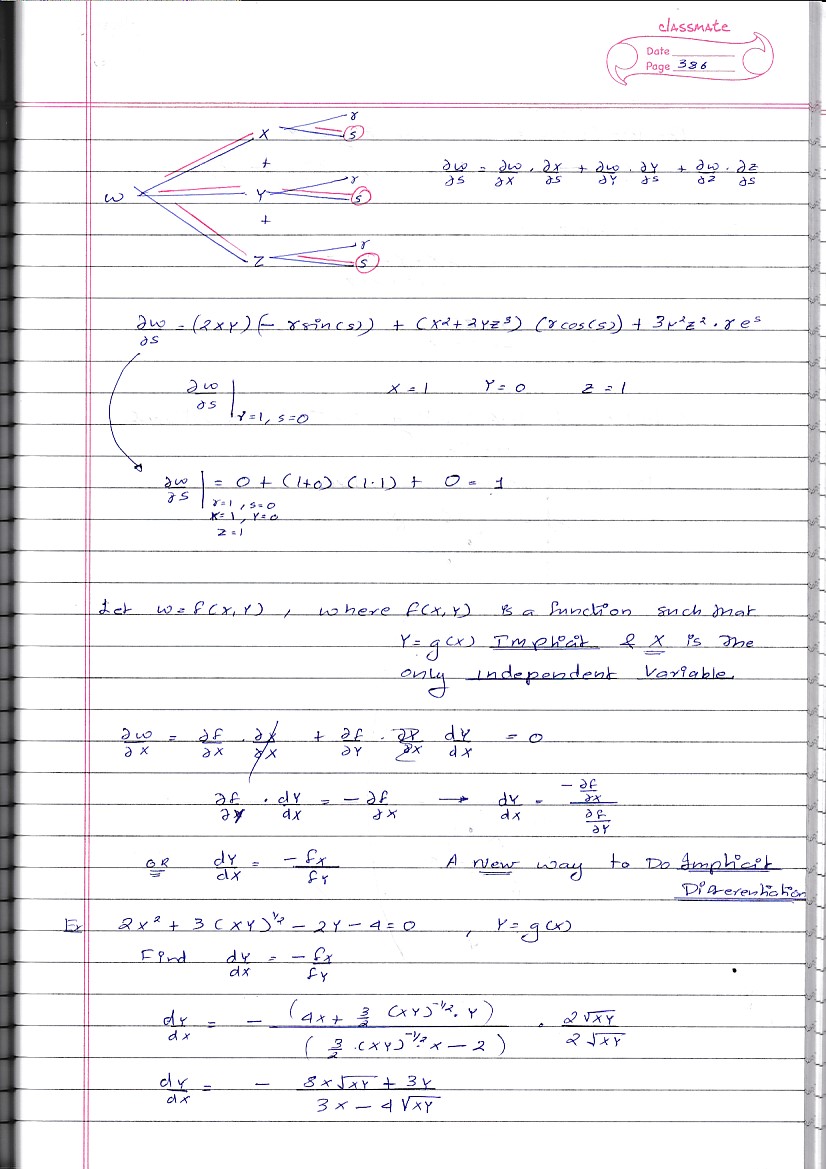 classmate
Date
Page 386
W X Y Z + + r s r s r s
∂w/∂s = ∂w/∂x · ∂x/∂s + ∂w/∂y · ∂y/∂s + ∂w/∂z · ∂z/∂s
∂w/∂s = (2xy)(- r sin(s)) + (x² + 2yz³) (r cos(s)) + 3y²z² · r eˢ
∂w/∂s | r=1, s=0 x = 1 y = 0 z = 1
∂w/∂s | r=1, s=0 x=1, y=0 z=1 = 0 + (1+0) (1·1) + 0 = 1
Let w = f(x,y) , where f(x,y) is a function such that
y = g(x) Implicit & x is the
only independent variable.
∂w/∂x = ∂f/∂x · ∂x/∂x + ∂f/∂y · dy/dx = 0
∂f/∂y · dy/dx = - ∂f/∂x → dy/dx = -∂f/∂x / ∂f/∂y
OR dy/dx = -fx/fy A New way to Do Implicit
Differentiation
Ex 2x² + 3(xy)^1/2 - 2y - 4 = 0 , y = g(x)
Find dy/dx = -fx/fy
dy/dx = - (4x + 3/2 (xy)^-1/2 · y) / (3/2 · (xy)^-1/2 · x - 2) · 2√xy / 2√xy
dy/dx = - (8x√xy + 3y) / (3x - 4√xy)